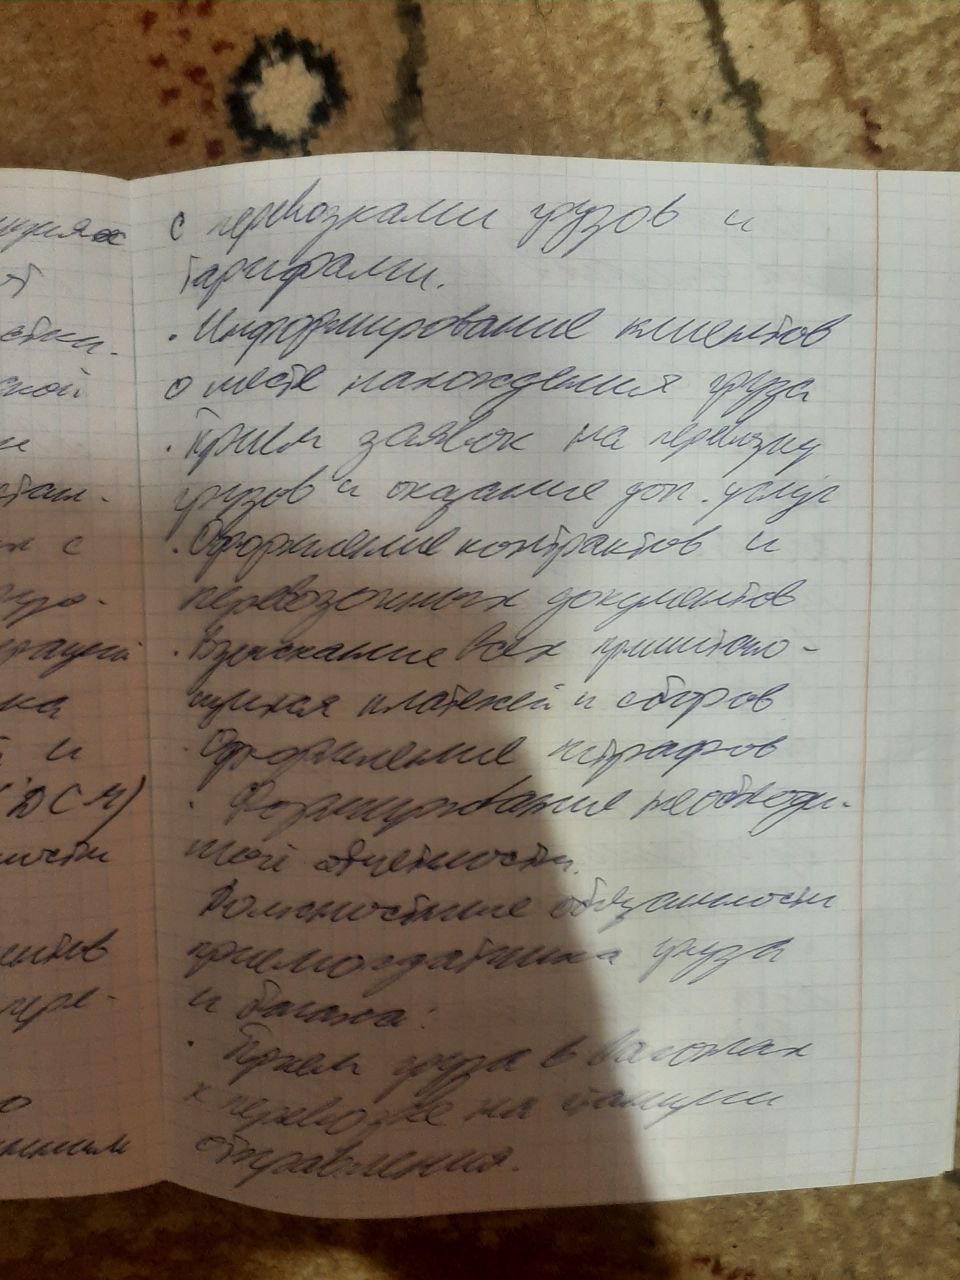 с перевозками грузов и
тарифами.
· Информирование клиентов
о месте нахождения груза
· Прием заявок на перевозку
грузов и оказание доп. услуг
· Оформление контрактов и
перевозочных документов
· Взыскание всех причитаю-
щихся платежей и сборов
· Оформление штрафов
· Формирование необходи-
мой отчетности.
Должностные обязанности
приемосдатчика груза
и багажа:
· Прием груза в вагонах
к перевозке на станции
отправления.
ской
и
стан-
х с
ка
й и
ДСМ)
ности
ентов
пере-
о